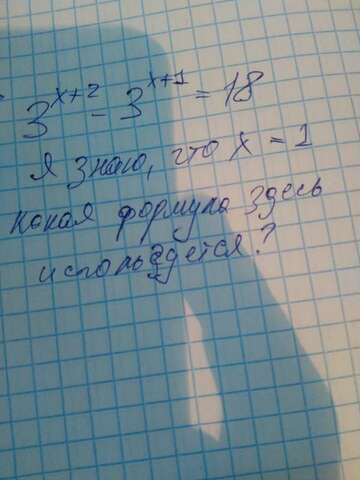 3^{x+2} - 3^{x+1} = 18
Я знаю, что x = 1
какая формула здесь
используется?